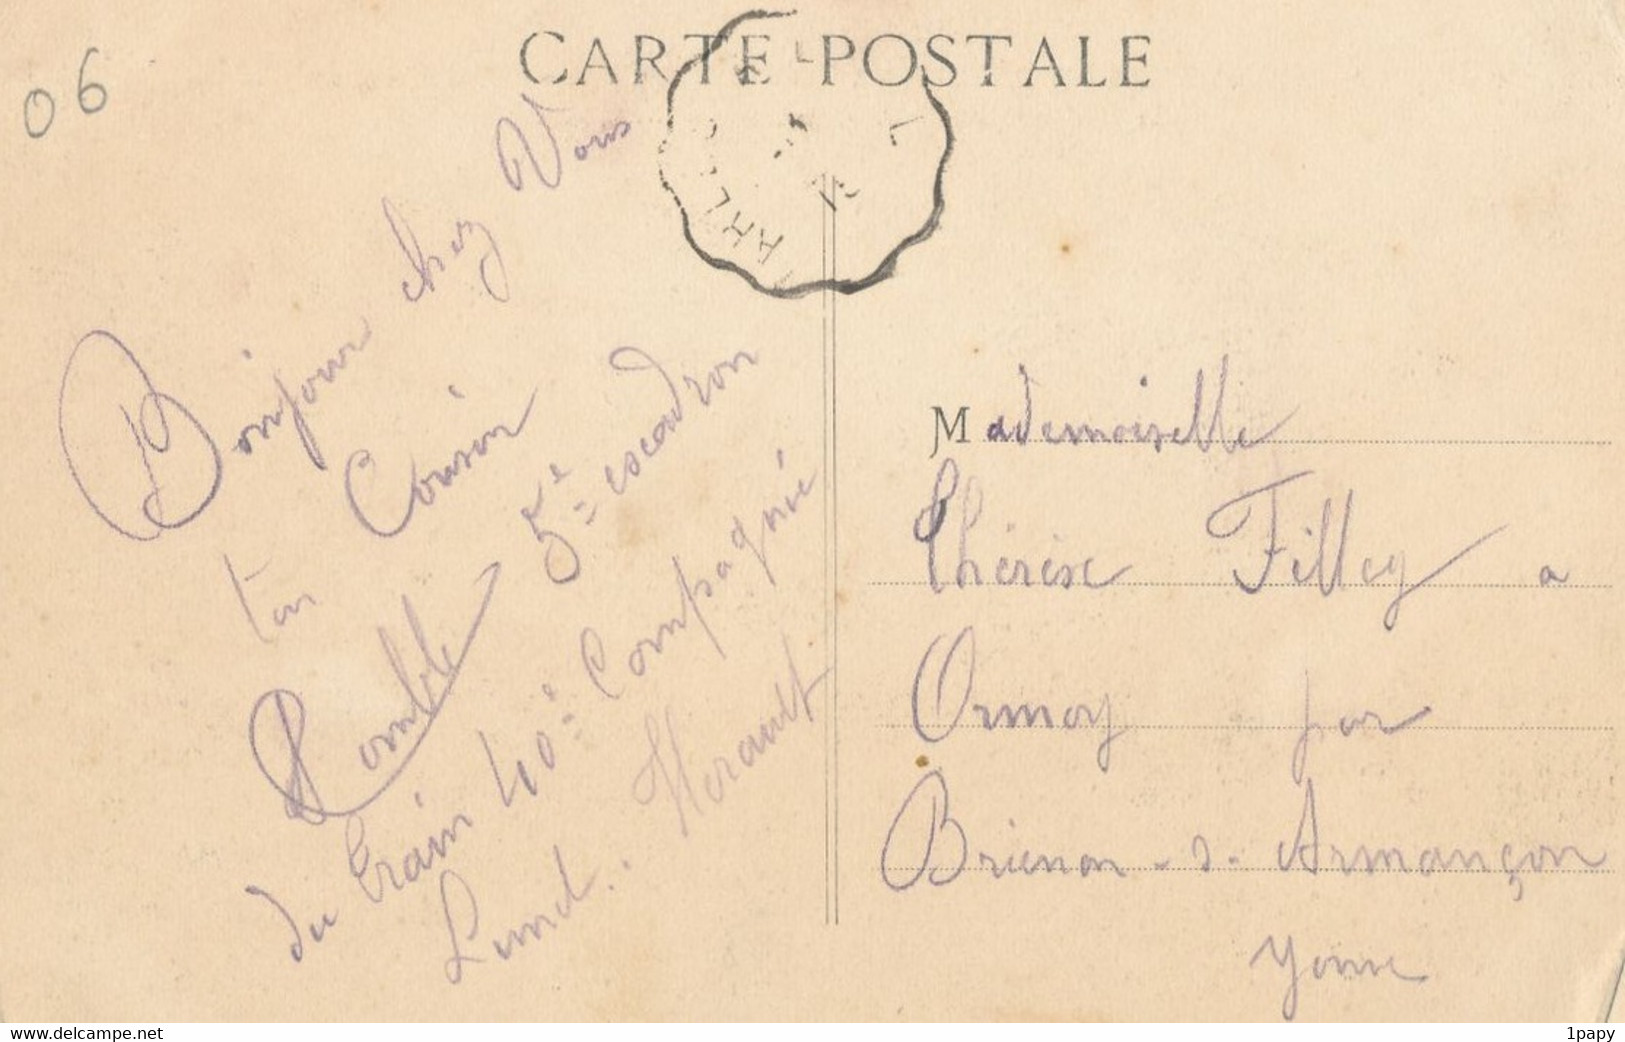 CARTE POSTALE
06
Bonjour chez Vous
ton Cousin
5e escadron
du train 40e Compagnie
Lunel.. Herault
Mademoiselle
Thérèse Filley a
Ormoy par
Brienon-s-Armançon
Yonne
www.delcampe.net
1papy